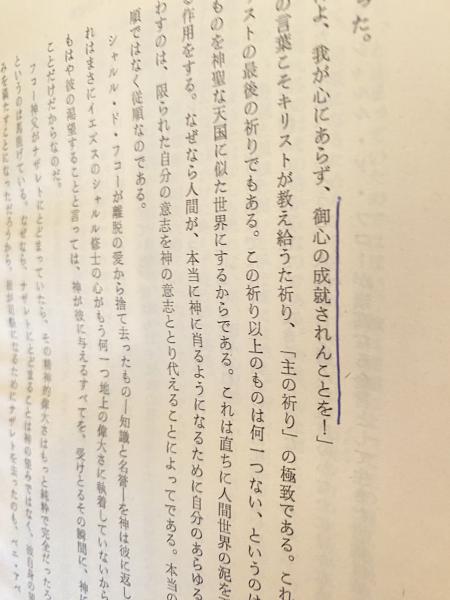 った。
よ、我が心にあらず、御心の成就されんことを！」
の言葉こそキリストが教え給うた祈り、「主の祈り」の極致である。これ
リストの最後の祈りでもある。この祈り以上のものは何一つない、というのは
ものを神聖な天国に似た世界にするからである。これは直ちに人間世界の泥を
る作用をする。なぜなら人間が、本当に神に肖るようになるために自分のあらゆる
わすのは、限られた自分の意志を神の意志ととり代えることによってである。本当の
順ではなく従順なのである。
シャルル・ド・フコーが離脱の愛から捨て去ったもの―知識と名誉―を神は彼に返し
れはまさにイエズスのシャルル修士の心がもう何一つ地上の偉大さに執着していないから
もはや彼の渇望することと言っては、神が彼に与えるすべてを、受けとるその瞬間に、神に
ことだけだからなのだ。
フコー神父がナザレトにとどまっていたら、その精神的偉大さはもっと純粋で完全だったろ
というのは馬鹿げている。なぜなら、ナザレトにとどまることは神の望みではなく、彼自身の望
みを満たすことになっただろうから。彼が司祭になるためにナザレトを去ったのも、ベニ・アベ